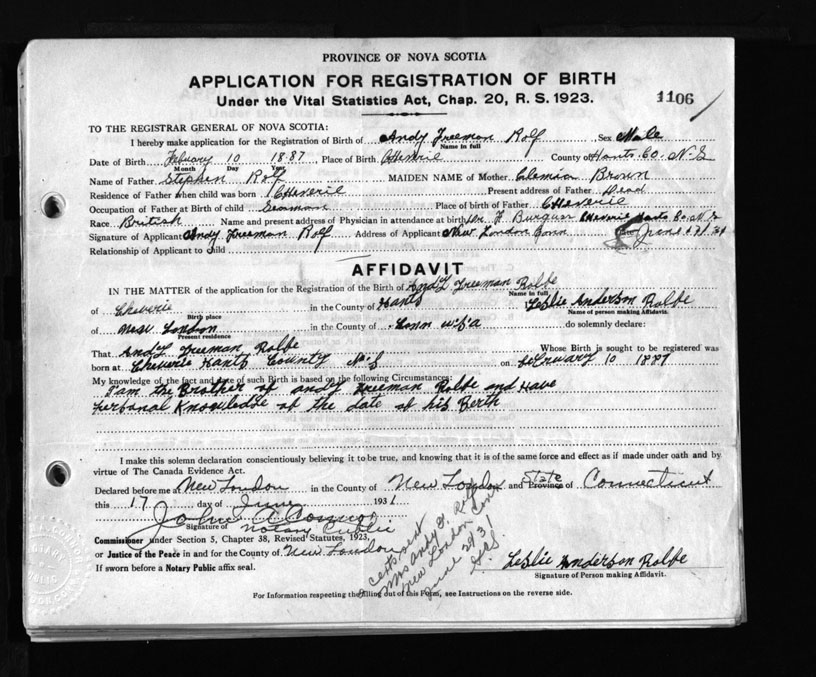 PROVINCE OF NOVA SCOTIA
APPLICATION FOR REGISTRATION OF BIRTH
Under the Vital Statistics Act, Chap. 20, R. S. 1923.
1106
TO THE REGISTRAR GENERAL OF NOVA SCOTIA:
I hereby make application for the Registration of Birth of Andy Freeman Rolf Sex Male
Name in full
Date of Birth February 10 1887 Place of Birth Cheverie County of Hants Co. N.S
Month Day Year
Name of Father Stephen Rolf MAIDEN NAME of Mother Brown
Residence of Father when child was born Cheverie Present address of Father Dead
Occupation of Father at Birth of child Seaman Place of birth of Father Cheverie
Race British Name and present address of Physician in attendance at birth Dr. F Cheverie Hants Co. N.S
Signature of Applicant Andy Freeman Rolf Address of Applicant New London Conn June
Relationship of Applicant to Child
AFFIDAVIT
IN THE MATTER of the application for the Registration of the Birth of Andy Freeman Rolfe
Name in full
of Cheverie in the County of Hants Leslie Anderson Rolfe
Birth place Name of person making Affidavit.
of New London in the County of Conn do solemnly declare:
Present residence
That Andy Freeman Rolfe Whose Birth is sought to be registered was
born at Cheverie Hants County N.S on February 10 1887
My knowledge of the fact and date of such Birth is based on the following Circumstances:
I am the Brother of Andy Freeman Rolfe and Have
Personal Knowledge of the date of his Berth
I make this solemn declaration conscientiously believing it to be true, and knowing that it is of the same force and effect as if made under oath and by
virtue of The Canada Evidence Act.
Declared before me at New London in the County of New London and State Province of Connecticut
this 17 day of June 1931
John
Signature of Notary Public
Commissioner under Section 5, Chapter 38, Revised Statutes, 1923,
or Justice of the Peace in and for the County of New London
If sworn before a Notary Public affix seal.
cert sent
Mrs Andy F. Rolf
New London Conn
June 29 31
Leslie Anderson Rolfe
Signature of Person making Affidavit.
For Information respecting the filling out of this Form, see Instructions on the reverse side.